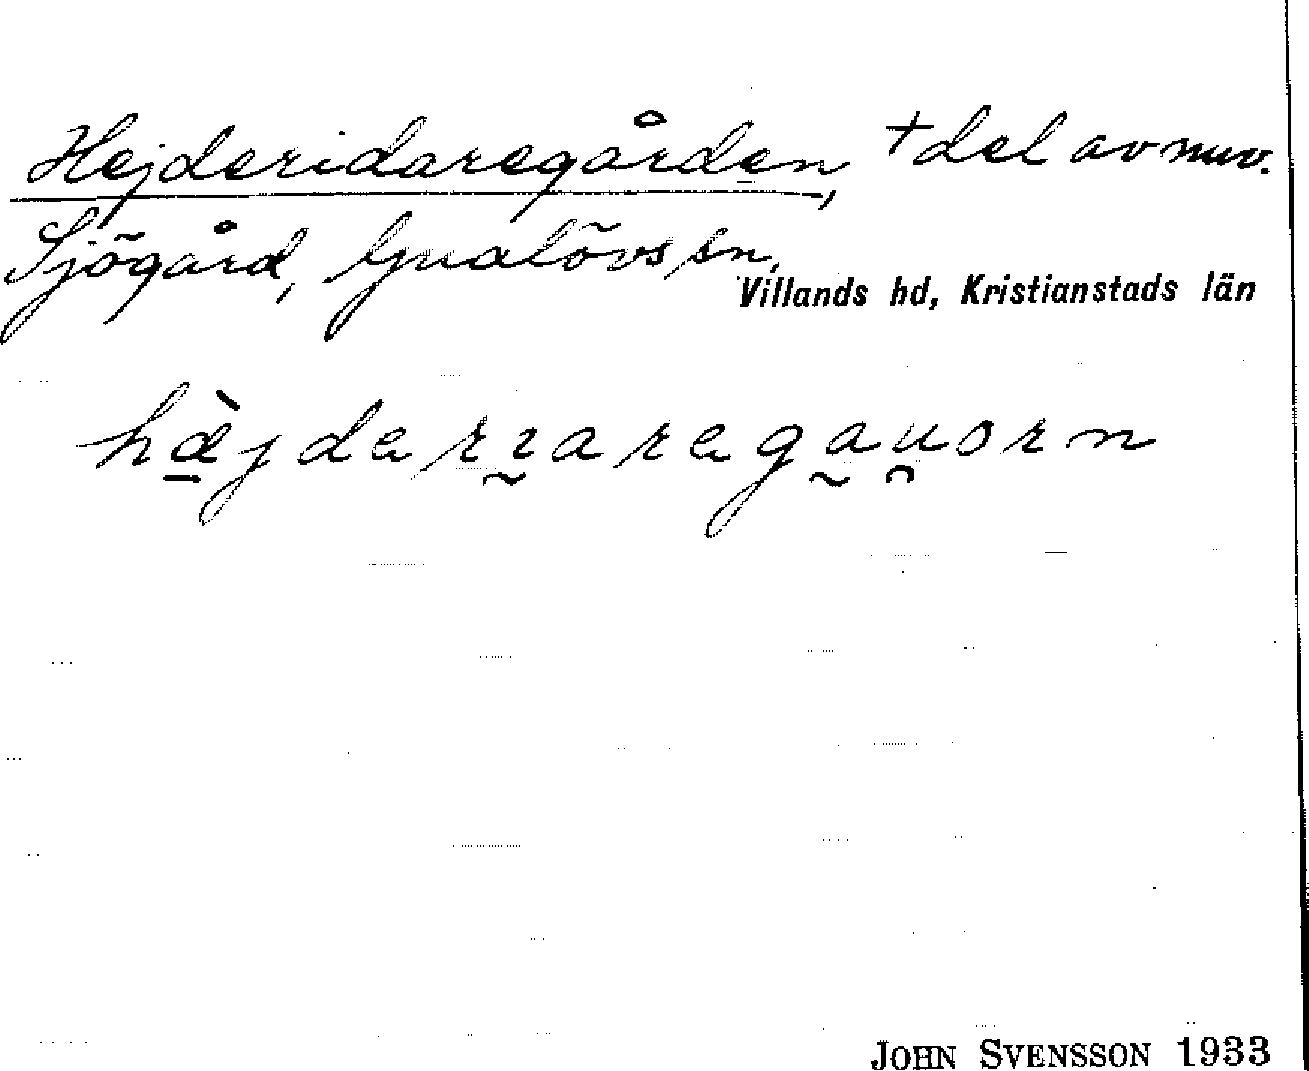 Hejderidaregården, † del av nuv.
Sjögård, Gualövs sn,
Villands hd, Kristianstads län
hæ̀jdarɪaragau̯orn
JOHN SVENSSON 1933